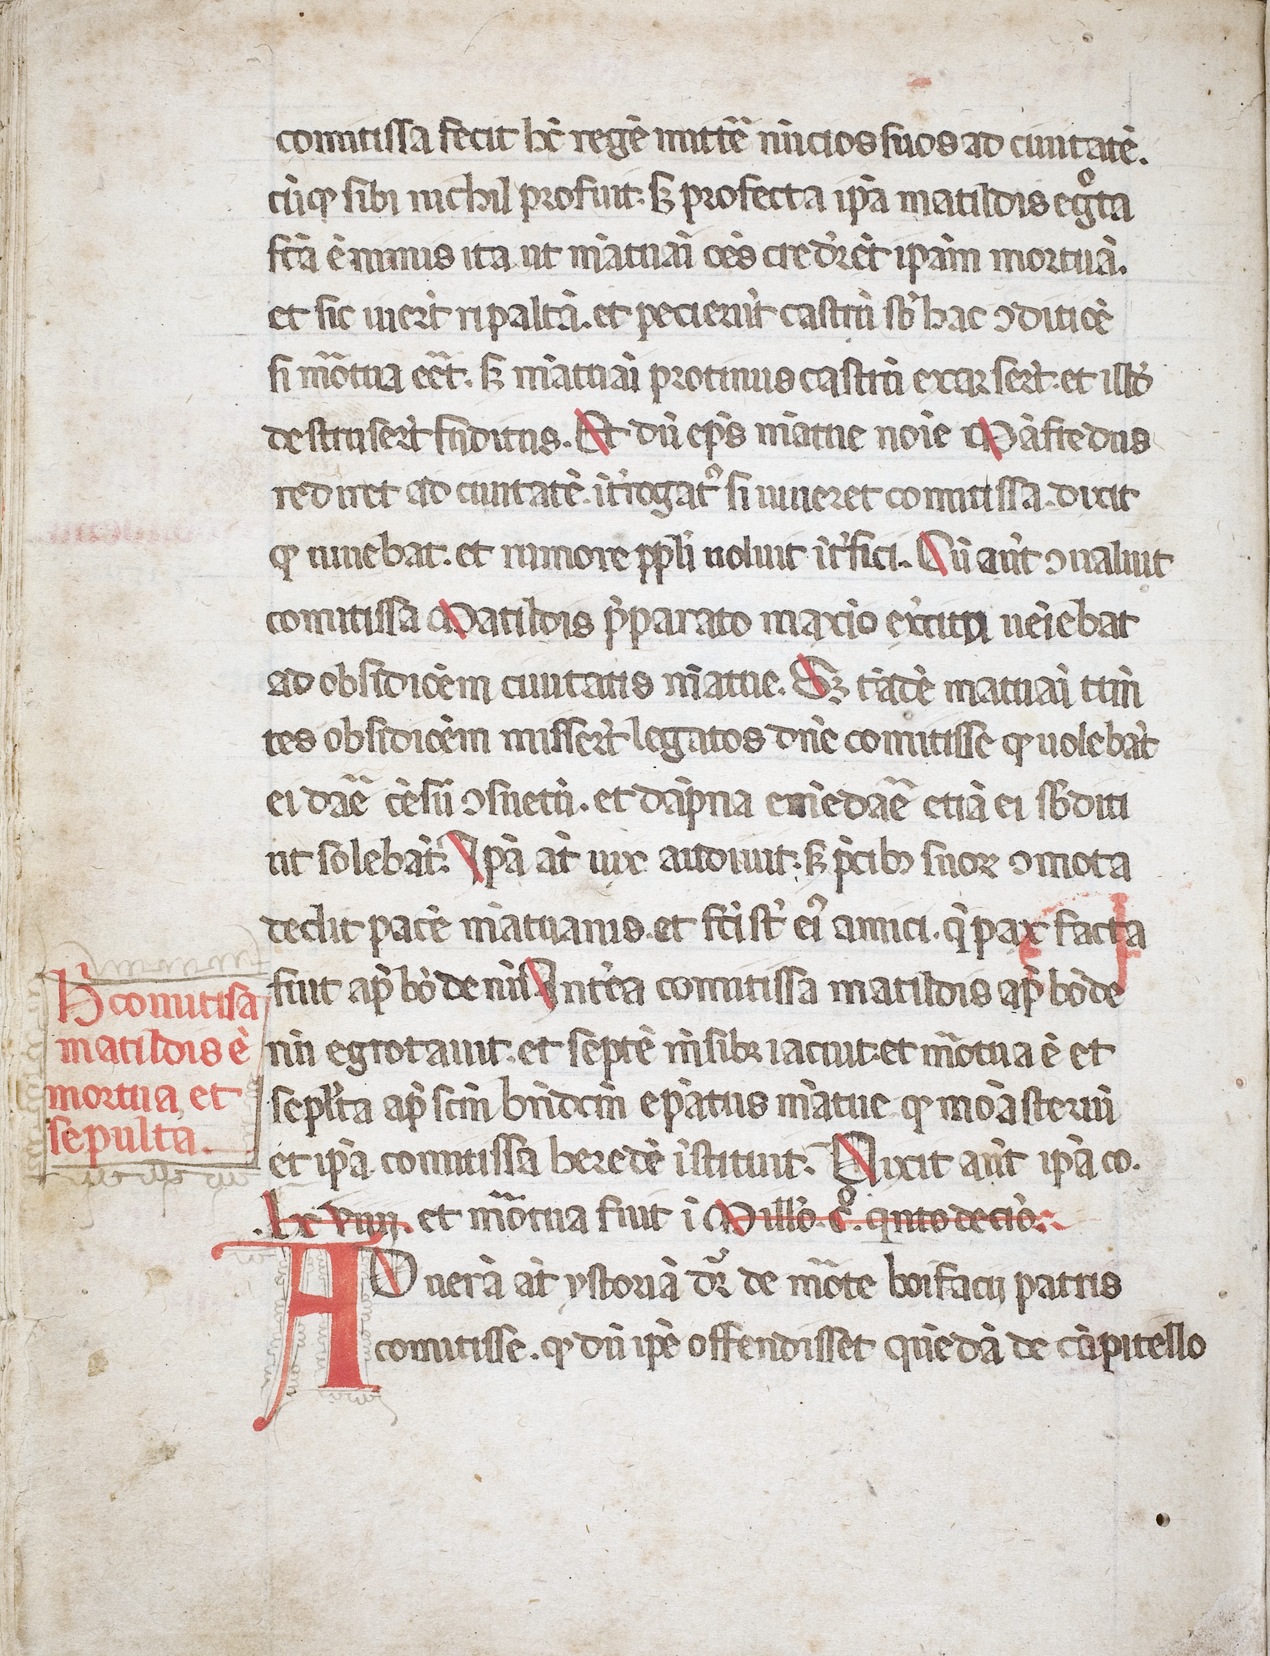 comitissa fecit hc̄ regē mittē nūcios suos ad ciuitatē.
cūqȝ sibi nichil profuit. sȝ profecta ip̄a matildis egͦta
fc̄a ē nimis ita ut mātuāi oēs crederēt ip̄am mortuā.
et sic uiert̄ ripaltā. et pecierūt castrū sb̄ hac ↄditiōe
si mōtua eēt. sȝ mātuāi protinus castrū exarsert̄. et ill'
destrusert̄ fūditus. Et dū ep̄s mātue noīe Māfredus
rediret ad ciuitatē. īt̄rogatꝰ si uiueret comitissa. dixit
qȝ uiuebat. et rumore pp̄li uoluit īt̄fici. Cū aūt ↄualuit
comitissa Matildis p̄parato maxīo ex̄citu ueīebat
ad obsidiōem ciuitatis mātue. Sȝ tādē matuāi tim
tes obsidiōem missert̄ legatos dn̄e comitisse qȝ uolebāt
ei daē cēsū ↄsuetū. et dāpna emēdaē etiā ei sb̄diti
ut solebāt. Ip̄a at̄ uix audiuit. sȝ p̄cibȝ suoꝝ ↄmota
dedit pacē mātuanis. et fc̄i st̄ eiꝰ amici. q̄ pax facta
fuit ap̄ bōdenū. Intēa comitissa matildis ap̄ bōde
nū egrotauit. et septē mēsibȝ iacuit. et mōtua ē et
sepl̄ta ap̄ sc̄m bn̄dc̄m ep̄atus mātue qȝ moāsteriū
et ip̄a comitissa heredē īstituit. Vixit aūt ip̄a co.
.lxviiij. et mōtua fuit ī Mill'o. cͦ. q̄nto deciō.
AD uerā at̄ ystoriā dr̄ de mōte boīfacij patris
comitisse. qȝ dū ip̄e offendisset quēdā de cāpitello
H̄ comitisa
matildis ē
mortua et
sepulta.